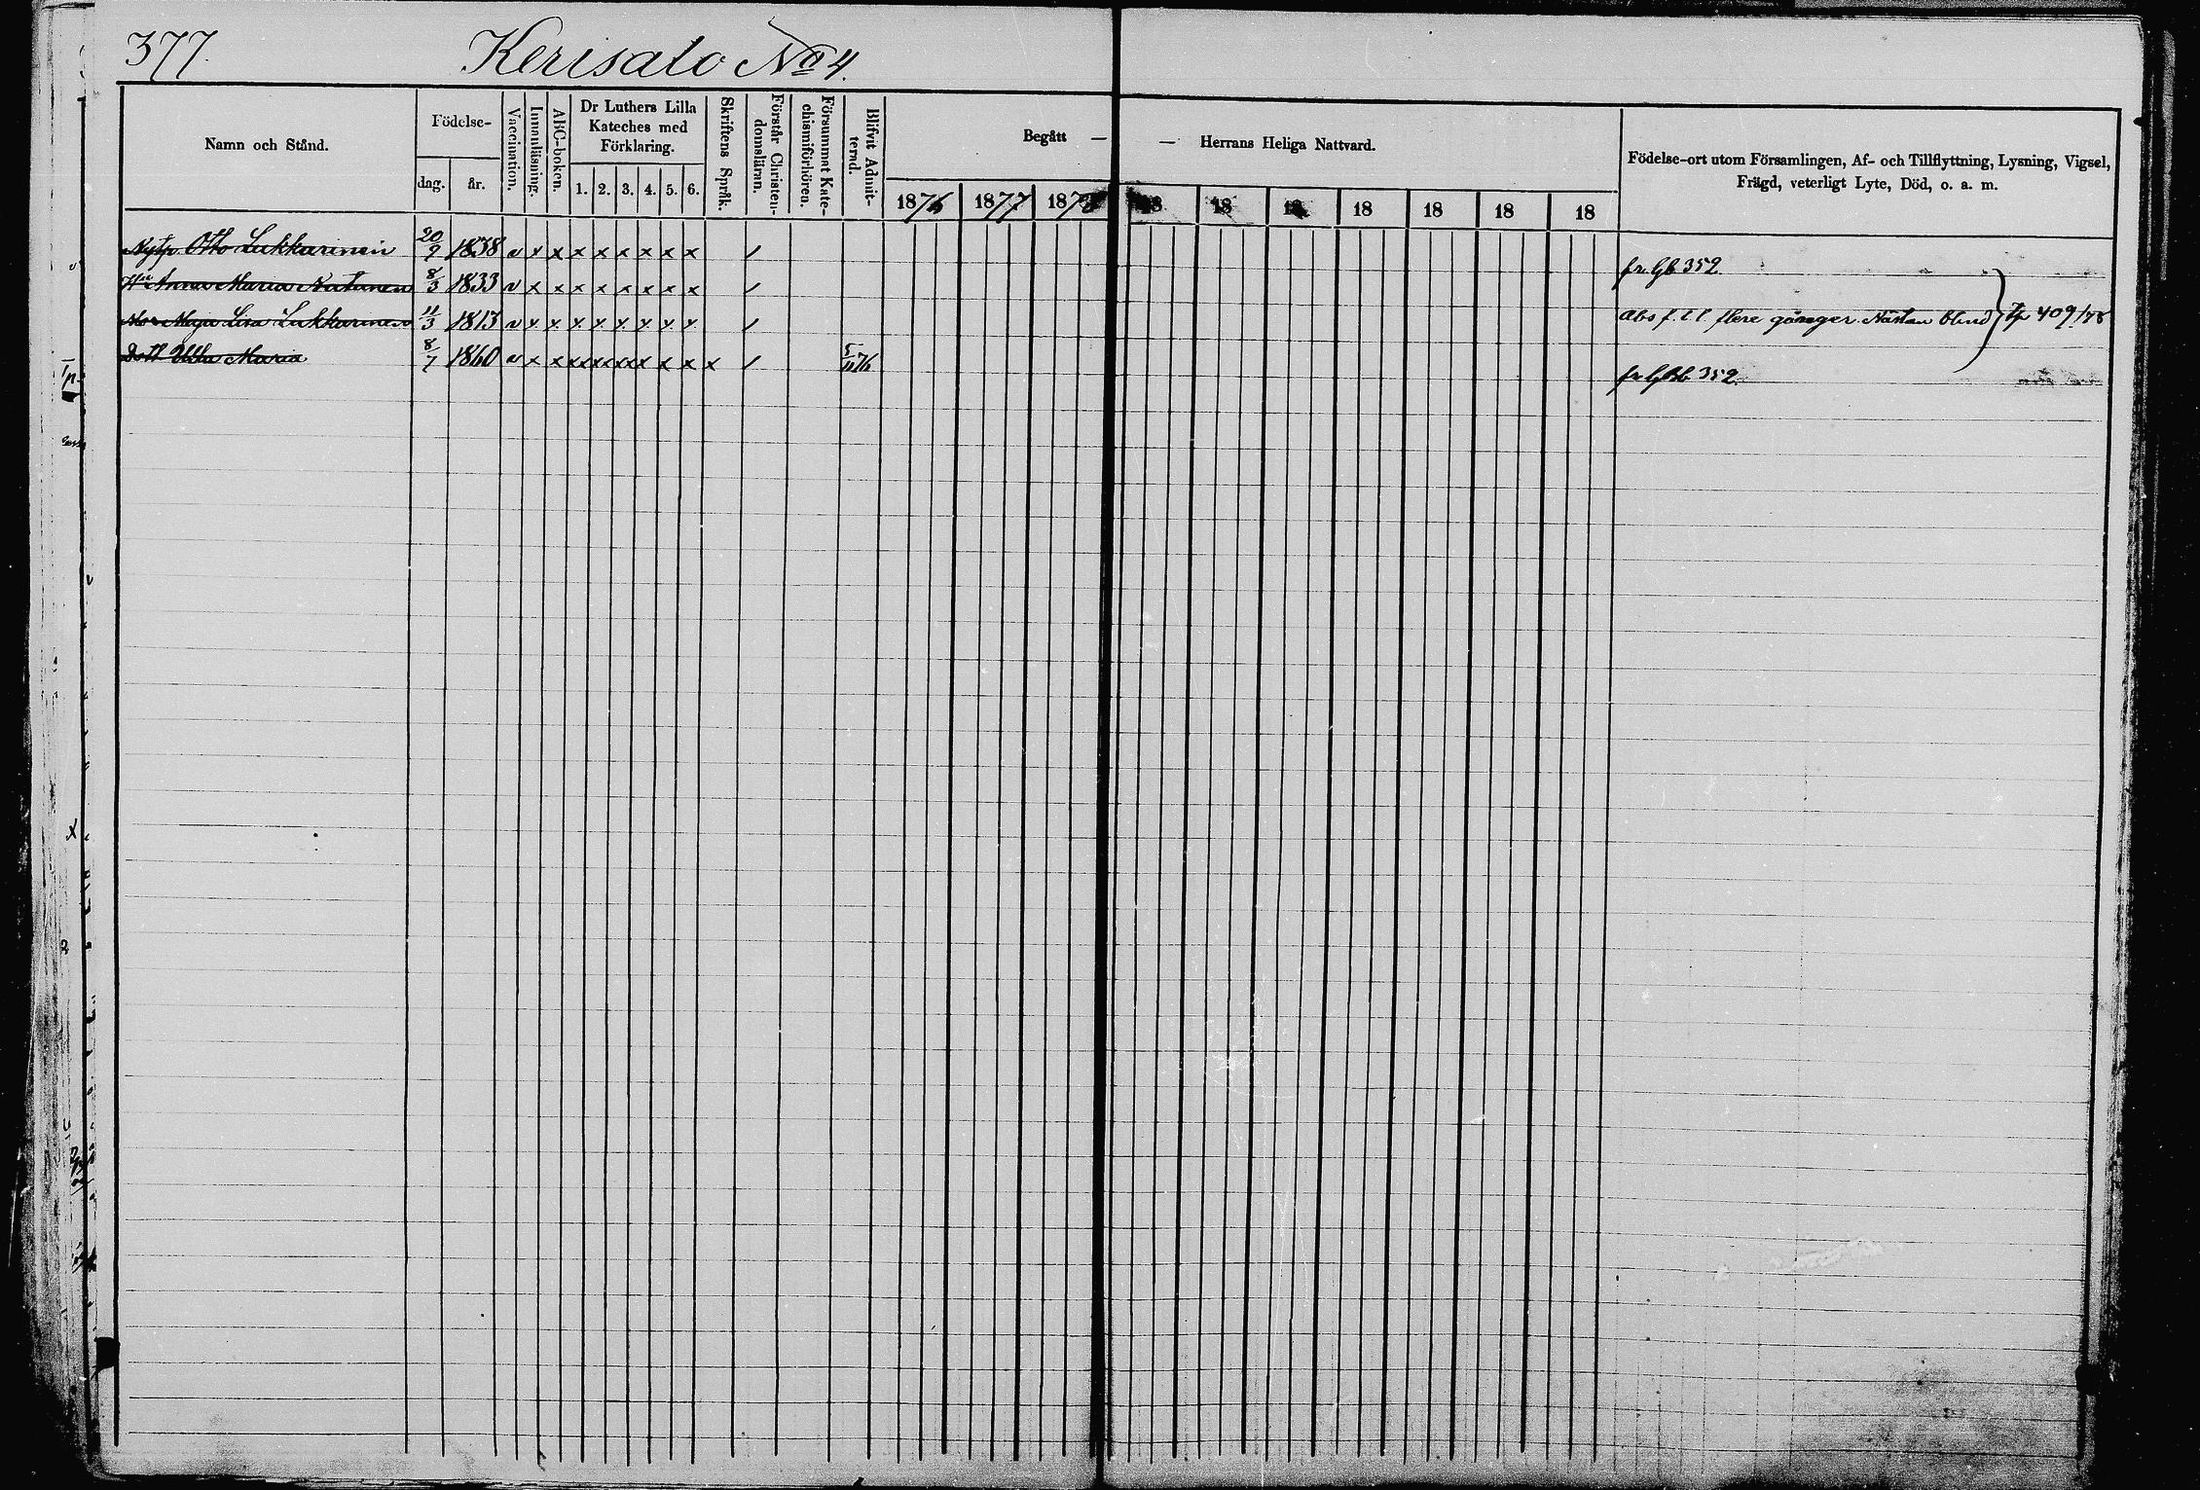 377.
Kerisalo No 4.
Namn och Stånd.
Födelse-
dag.
år.
Vaccination.
Innanläsning.
ABC-boken.
Dr Luthers Lilla
Kateches med
Förklaring.
1. 2. 3. 4. 5. 6.
Skriftens Språk.
Förstår Christen-
domsläran.
Försummat Kate-
chismiförhören.
Blifvit Admit-
terad.
Begått —
— Herrans Heliga Nattvard.
1876 1877 1878 18 18 18 18 18 18 18
Födelse-ort utom Församlingen, Af- och Tillflyttning, Lysning, Vigsel,
Frägd, veterligt Lyte, Död, o. a. m.
Otto Lukkarinen 20/9 1838 v x x x x x x x x /
fr. Gb 352
Hu Anna Maria Natunen 8/3 1833 v x x x x x x x x /
Maja Lisa Lukkarinen 11/3 1813 v x x x x x x x x /
abs f. l l flere gånger. Nästan blind
tp 409/78
Dott Ulla Maria 8/7 1860 v x x x x x x x x x / 5/11 76
352